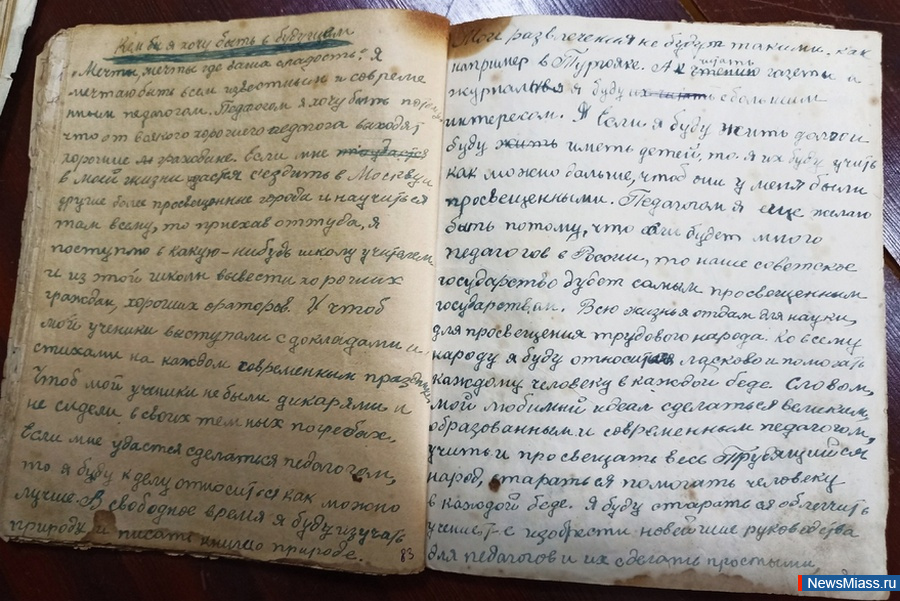 Кем бы я хочу быть в будущем
Мечты, мечты где ваша сладость? Я
мечтаю быть всем известным и совреме
нным педагогом. Педагогом я хочу быть потому
что от всякого хорошего педагога выходят
хорошие граждане. Если мне
в моей жизни удастся съездить в Москву и
другие более просвещенные города и научиться
там всему, то приехав оттуда, я
поступлю в какую-нибудь школу учителем
и из этой школы вывести хороших
граждан, хороших ораторов. И чтоб
мои ученики выступали с докладами и
стихами на каждом современным празднике
Чтоб мой ученики не были дикарями и
не сидели в своих темных погребах.
Если мне удастся сделаться педагогом,
то я буду к делу относиться как можно
лучше. В свободное время я буду изучать
природу и писать о природе.
83
Мои развлечения не будут такими, как
например в Тургояке. А читать газеты и
журналы я буду с большим
интересом. Если я буду жить долго и
буду иметь детей, то я их буду учить
как можно больше, чтоб они у меня были
просвещенными. Педагогом я еще желаю
быть потому, что если будет много
педагогов в России, то наше советское
государство будет самым просвещенным
государством. Всю жизнь я отдам для науки,
для просвещения трудового народа. Ко всему
народу я буду относиться ласково и помогать
каждому человеку в каждой беде. Словом,
мой любимый идеал сделаться великим,
образованным и современным педагогом,
учить и просвещать весь Трудящийся
народ, стараться помогать человеку
в каждой беде. Я буду стараться облегчить
учение, т-е изобрести новейшие руководства
для педагогов и их сделать простыми
NewsMiass.ru